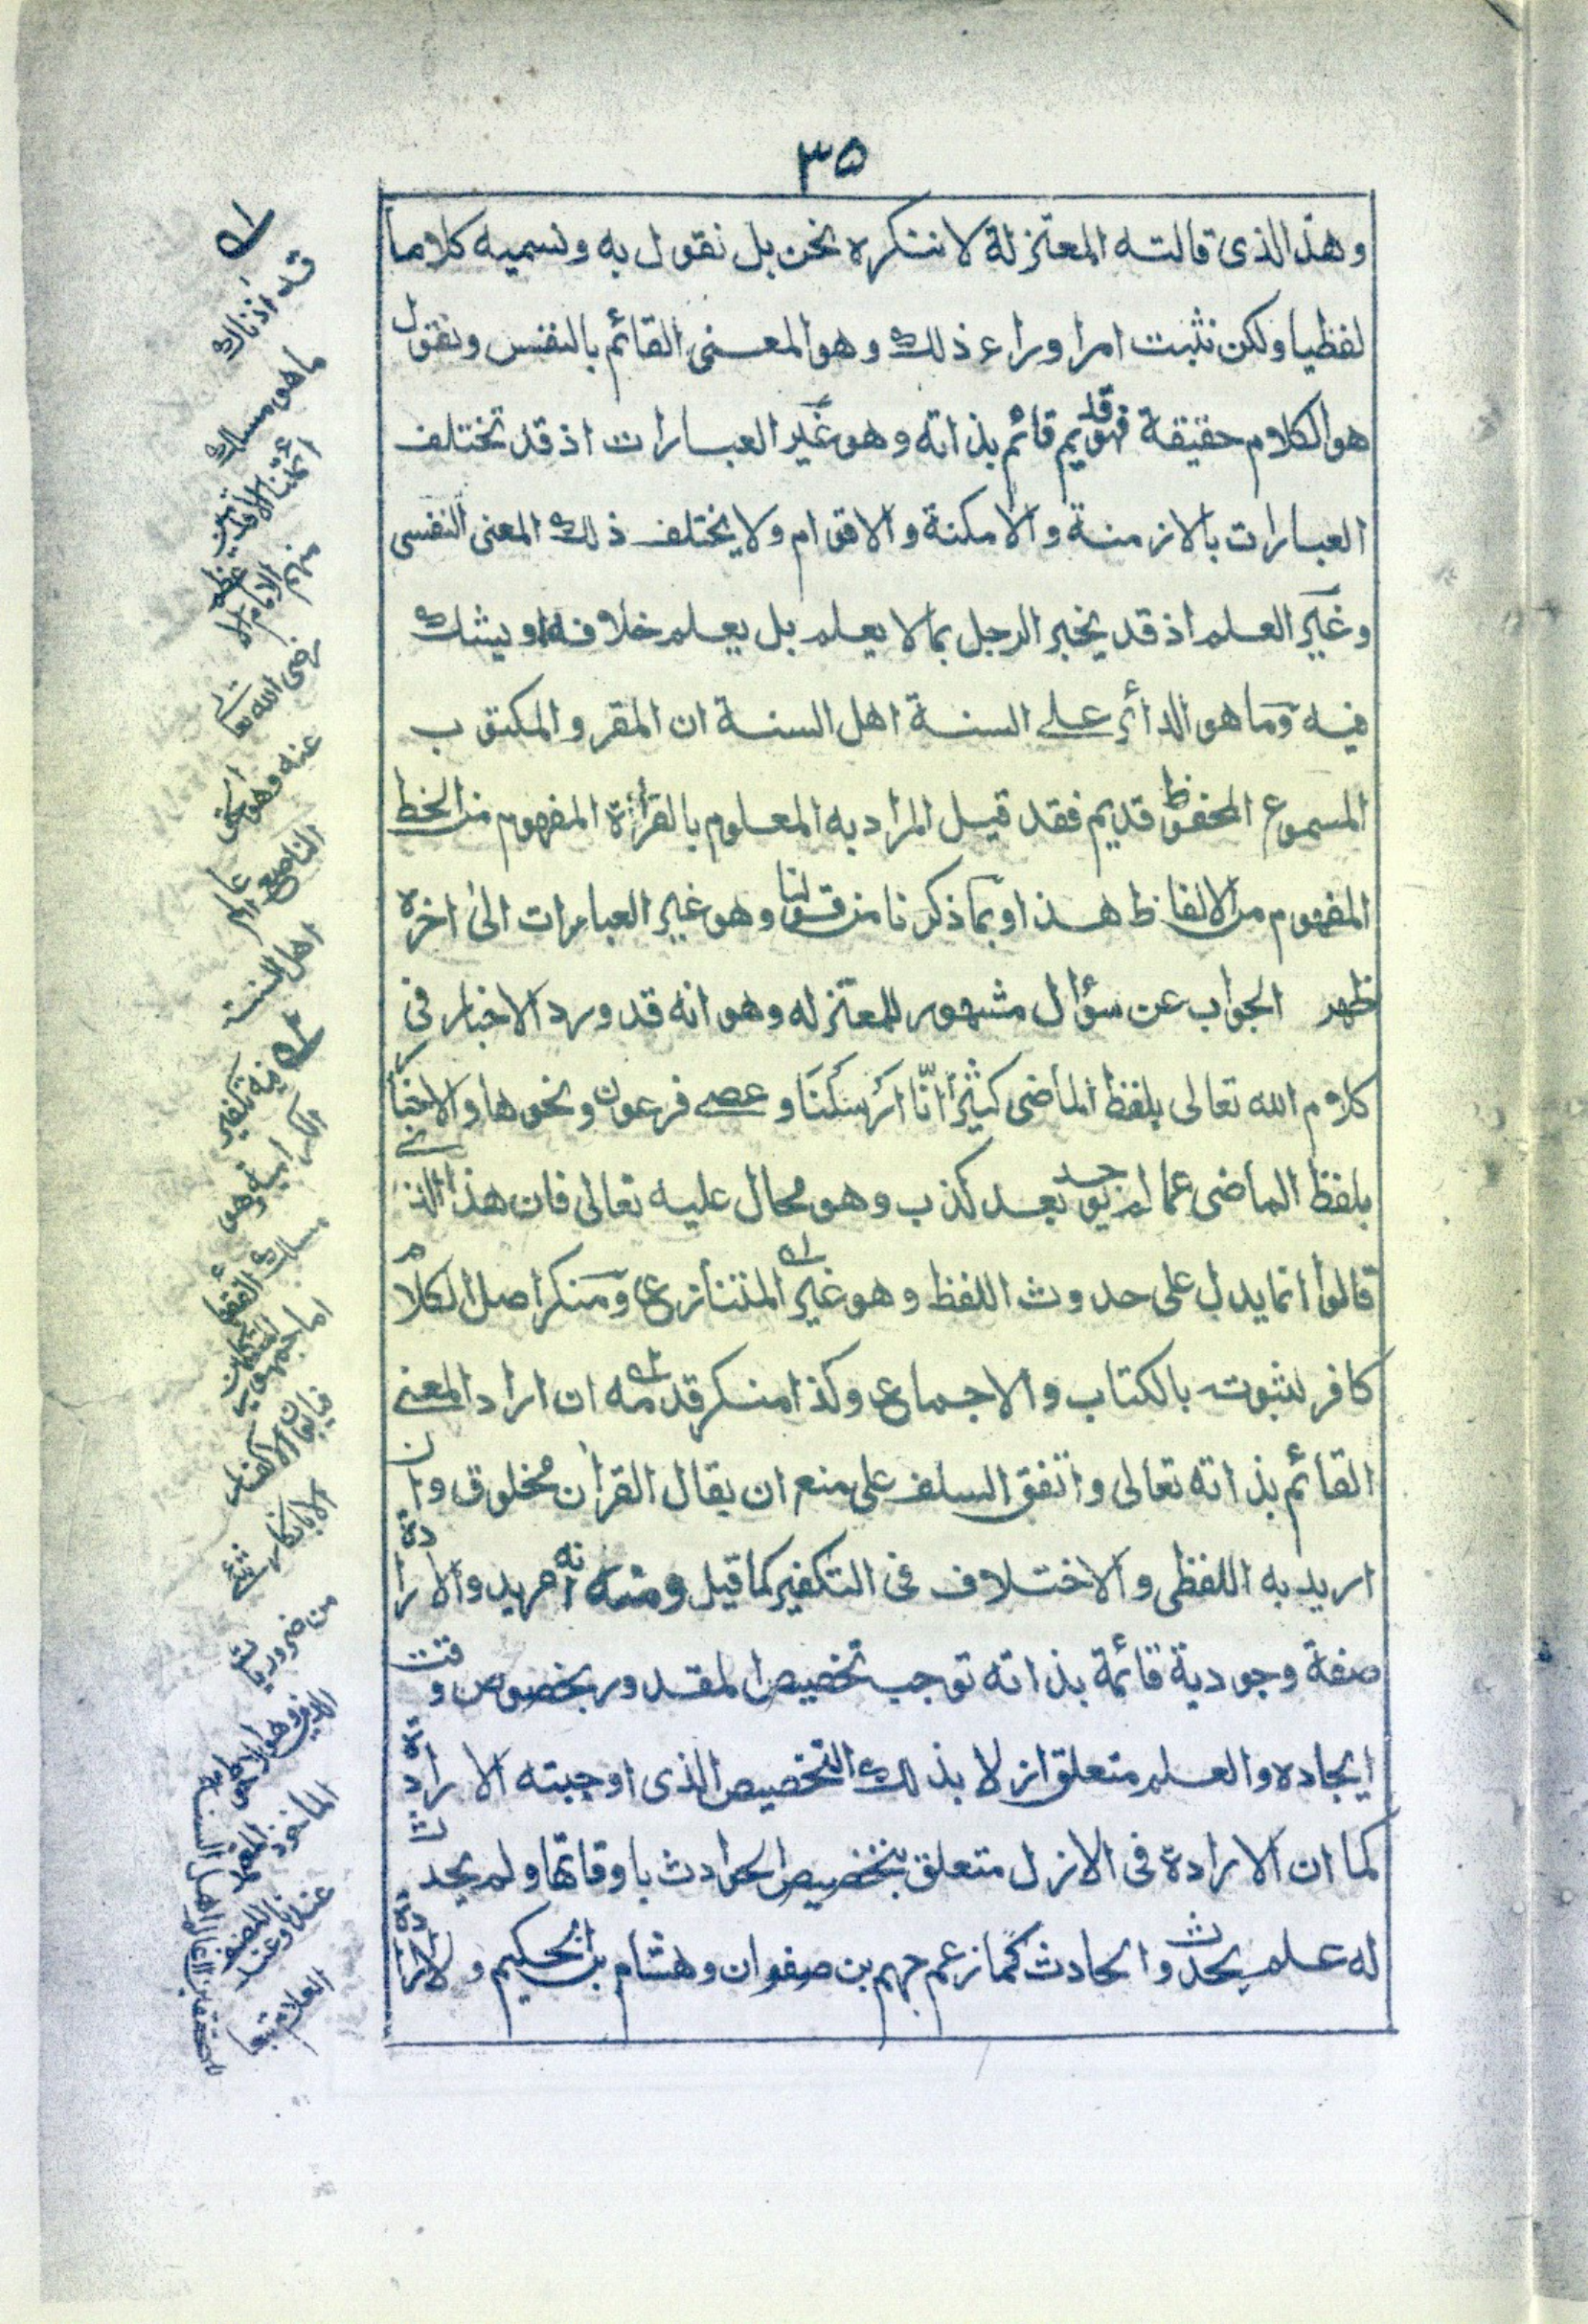 ٣٥
وهذا الذى قالته المعتزلة لا ننكره نحن بل نقول به ونسميه كلاما
لفظيا ولكن نثبت امرا وراء ذلك وهو المعنى القائم بالنفس ونقول
هو الكلام حقيقة فهو قديم قائم بذاته وهو غير العبارات اذ قد تختلف
العبارات بالازمنة والامكنة والاقوام ولا يختلف ذلك المعنى النفسى
وغير العلم اذ قد يخبر الرجل بما لا يعلم بل يعلم خلافه او يشك
فيه وما هو الدائر على السنة اهل السنة ان المقر والمكتوب
المسموع المحفوظ قديم فقد قيل المراد به المعلوم بالقرأة المفهوم من الخط
المفهوم من الالفاظ هذا وبما ذكرنا من قولنا وهو غير العبارات الى اخره
ظهر الجواب عن سؤال مشهور للمعتزله وهو انه قد ورد الاخبار فى
كلام الله تعالى بلفظ الماضى كثيرا انّا ارسلنا وعصى فرعون ونحوها والاخبار
بلفظ الماضى عما لم يوجد بعد كذب وهو محال عليه تعالى فان هذا الذى
قالوا انما يدل على حدوث اللفظ وهو غير المتنازع ومنكر اصل الكلام
كافر لثبوته بالكتاب والاجماع وكذا منكر قدمه ان اراد المعنى
القائم بذاته تعالى واتفق السلف على منع ان يقال القرأن مخلوق وان
اريد به اللفظى والاختلاف فى التكفير كما قيل ومنه انه مريد والارادة
صفة وجودية قائمة بذاته توجب تخصيص المقدور بخصوص وقت
ايجاده والعلم متعلق ازلا بذلك التخصيص الذى اوجبته الارادة
كما ان الارادة فى الازل متعلق بتخصيص الحوادث باوقاتها ولم يحدث
له علم بحدوث الحادث كما زعم جهم بن صفوان وهشام بن الحكيم و
قد اذناك
ما هو مسلك
ائمتنا الاقدمين
منهم الامام
رضى الله تعالى
عنه وهو الحق
الناصع
اهل السنة
فيه تكفير
الكرامية وهو
مسلك الفقهاء
اما جمهور المتكلمين
من ضروريات